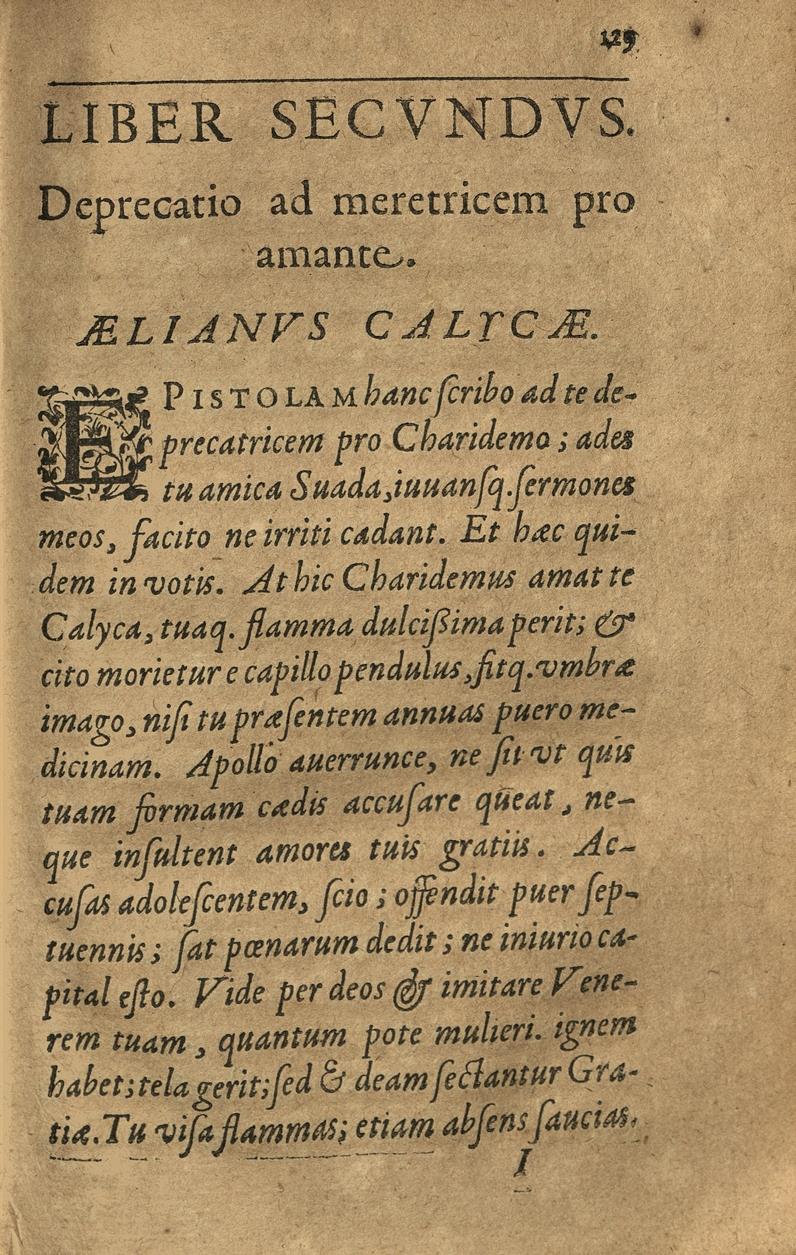 129
LIBER SECVNDVS.
Deprecatio ad meretricem pro
amante.
ÆLIANVS CALYCÆ.
EPISTOLAM hanc ſcribo ad te de-
precatricem pro Charidemo; ades
tu amica Suada, iuuanſq. ſermones
meos, facito ne irriti cadant. Et hæc qui-
dem in votis. At hic Charidemus amat te
Calyca, tuaq. flamma dulcißima perit; &
cito morietur e capillo pendulus, fitq. vmbræ
imago, niſi tu præſentem annuas puero me-
dicinam. Apollo auerrunce, ne ſit vt quis
tuam formam cædis accuſare queat, ne-
que inſultent amores tuis gratiis. Ac-
cuſas adoleſcentem, ſcio; offendit puer ſep-
tuennis; ſat pœnarum dedit; ne iniurio ca-
pital eſto. Vide per deos & imitare Vene-
rem tuam, quantum pote mulieri. ignem
habet; tela gerit; ſed & deam ſectantur Gra-
tiæ. Tu viſa flammas; etiam abſens ſaucias,
I